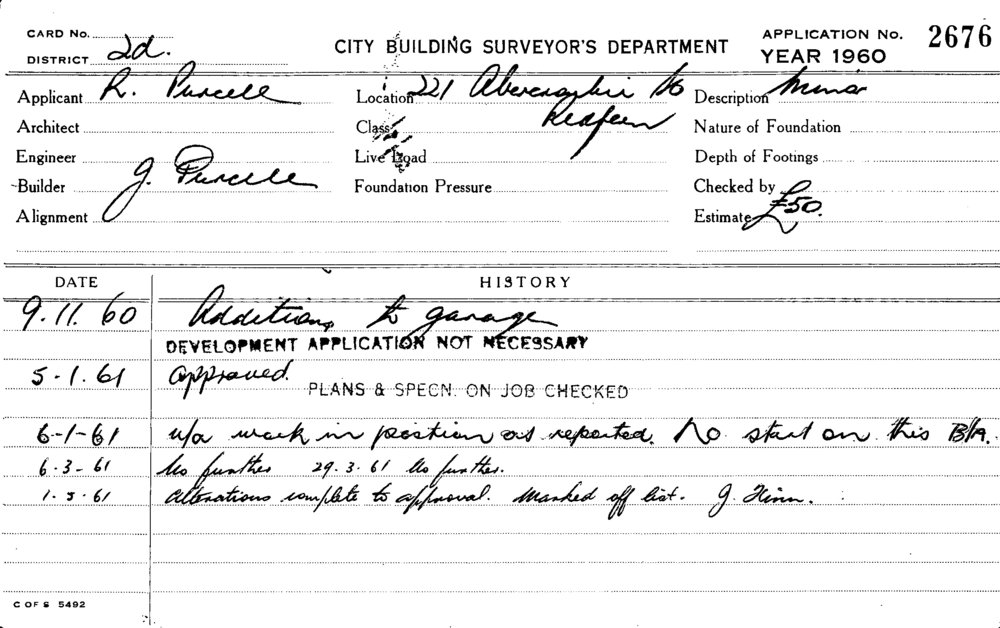 CARD No.
DISTRICT 2d.
CITY BUILDING SURVEYOR'S DEPARTMENT
APPLICATION No. 2676
YEAR 1960
Applicant R. Purcell
Location 221 Abercrombie St
Redfern
Description Minor
Architect
Class
Nature of Foundation
Engineer
Live Load
Depth of Footings
Builder J. Purcell
Foundation Pressure
Checked by
Alignment
Estimate £50.
DATE HISTORY
9.11.60 Additions to garage
DEVELOPMENT APPLICATION NOT NECESSARY
5-1.61 approved.
PLANS & SPECN. ON JOB CHECKED
6-1-61 u/a work in position as reported. No start on this B/A.
6.3-61 No further 29.3.61 No further.
1.5.61 Alterations complete to approval. Marked off list. J.
C OF S 5492